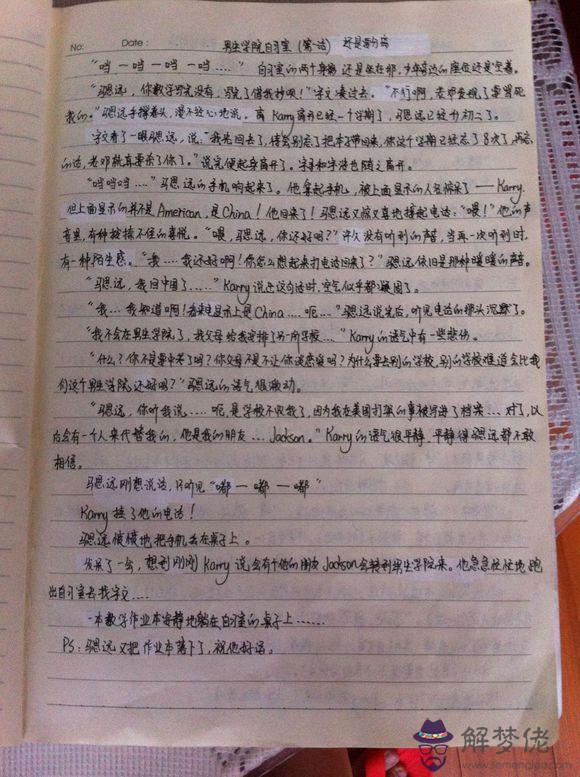 No: Date: 男生学院自习室(第一话) 还是要分离
“鸣一鸣一鸣一鸣....” 自习室的两个身影还是坐在那,少年身边的座位还是空着。
“马思远,你数学写完没有,写完了借我抄呗!”字文凑过去。“不行啊,老邓会说了要骂死
我的。”马思远手撑着头,漫不经心地说。离Karry离开已经一个学期了,马思远已经升初二了。
字文看了一眼马思远,说:“我先回去了,待会别忘了把本子带回来,你这个学期已经忘了8次了,再忘
的话,老邓就真要杀了你了。”说完便起身离开了。字寻和字浩也随之离开。
“鸣鸣鸣....”马思远的手机响起来了。他拿起手机,被上面显示的人名惊呆了——Karry
但上面显示的并不是American,是China!他回来了!马思远又惊又喜地接起电话:“喂!”他的声
音里,有种按捺不住的喜悦。“喂,马思远,你还好吗?”许久没有听到的声音,当再一次听到时,
有一种陌生感。“我....我还好啊!你怎么想起来打电话回来了?”马思远依旧是那种暖暖的声音。
“马思远,我回中国了......”Karry说这句话时,空气似乎都凝固了。
“我...我知道啊!看来电显示上是China....呃....”马思远说完后,听见电话的那头沉默了。
“我不会在男生学院了,我父母给我安排了另一所学校...”Karry的语气中有一些悲伤。
“什么?你不是要中考了吗?你父母不是不让你读慈爱吗?为什么要去别的学校,别的学校难道会比我
们这个男生学院还好吗?”马思远的语气很激动。
“马思远,你听我说.....呃,是学校不收我了,因为我在美国打架的事被写进了档案...对了,以
后会有一个人来代替我的,他是我的朋友...Jackson。”Karry的语气很平静,平静得马思远都不敢
相信。
马思远刚想说话,只听见“嘟一嘟一嘟”
Karry挂了他的电话!
马思远慢慢地把手机丢在桌子上。
发呆了一会,想到刚刚Karry说,会有个他的朋友Jackson会转到男生学院来。他急急忙忙地跑
出自习室去找字文....
一本数学作业本安静地躺在自习室的桌子上......
PS:马思远又把作业本落下了,祝他好运。
解梦佬
www.jiemenglao.com